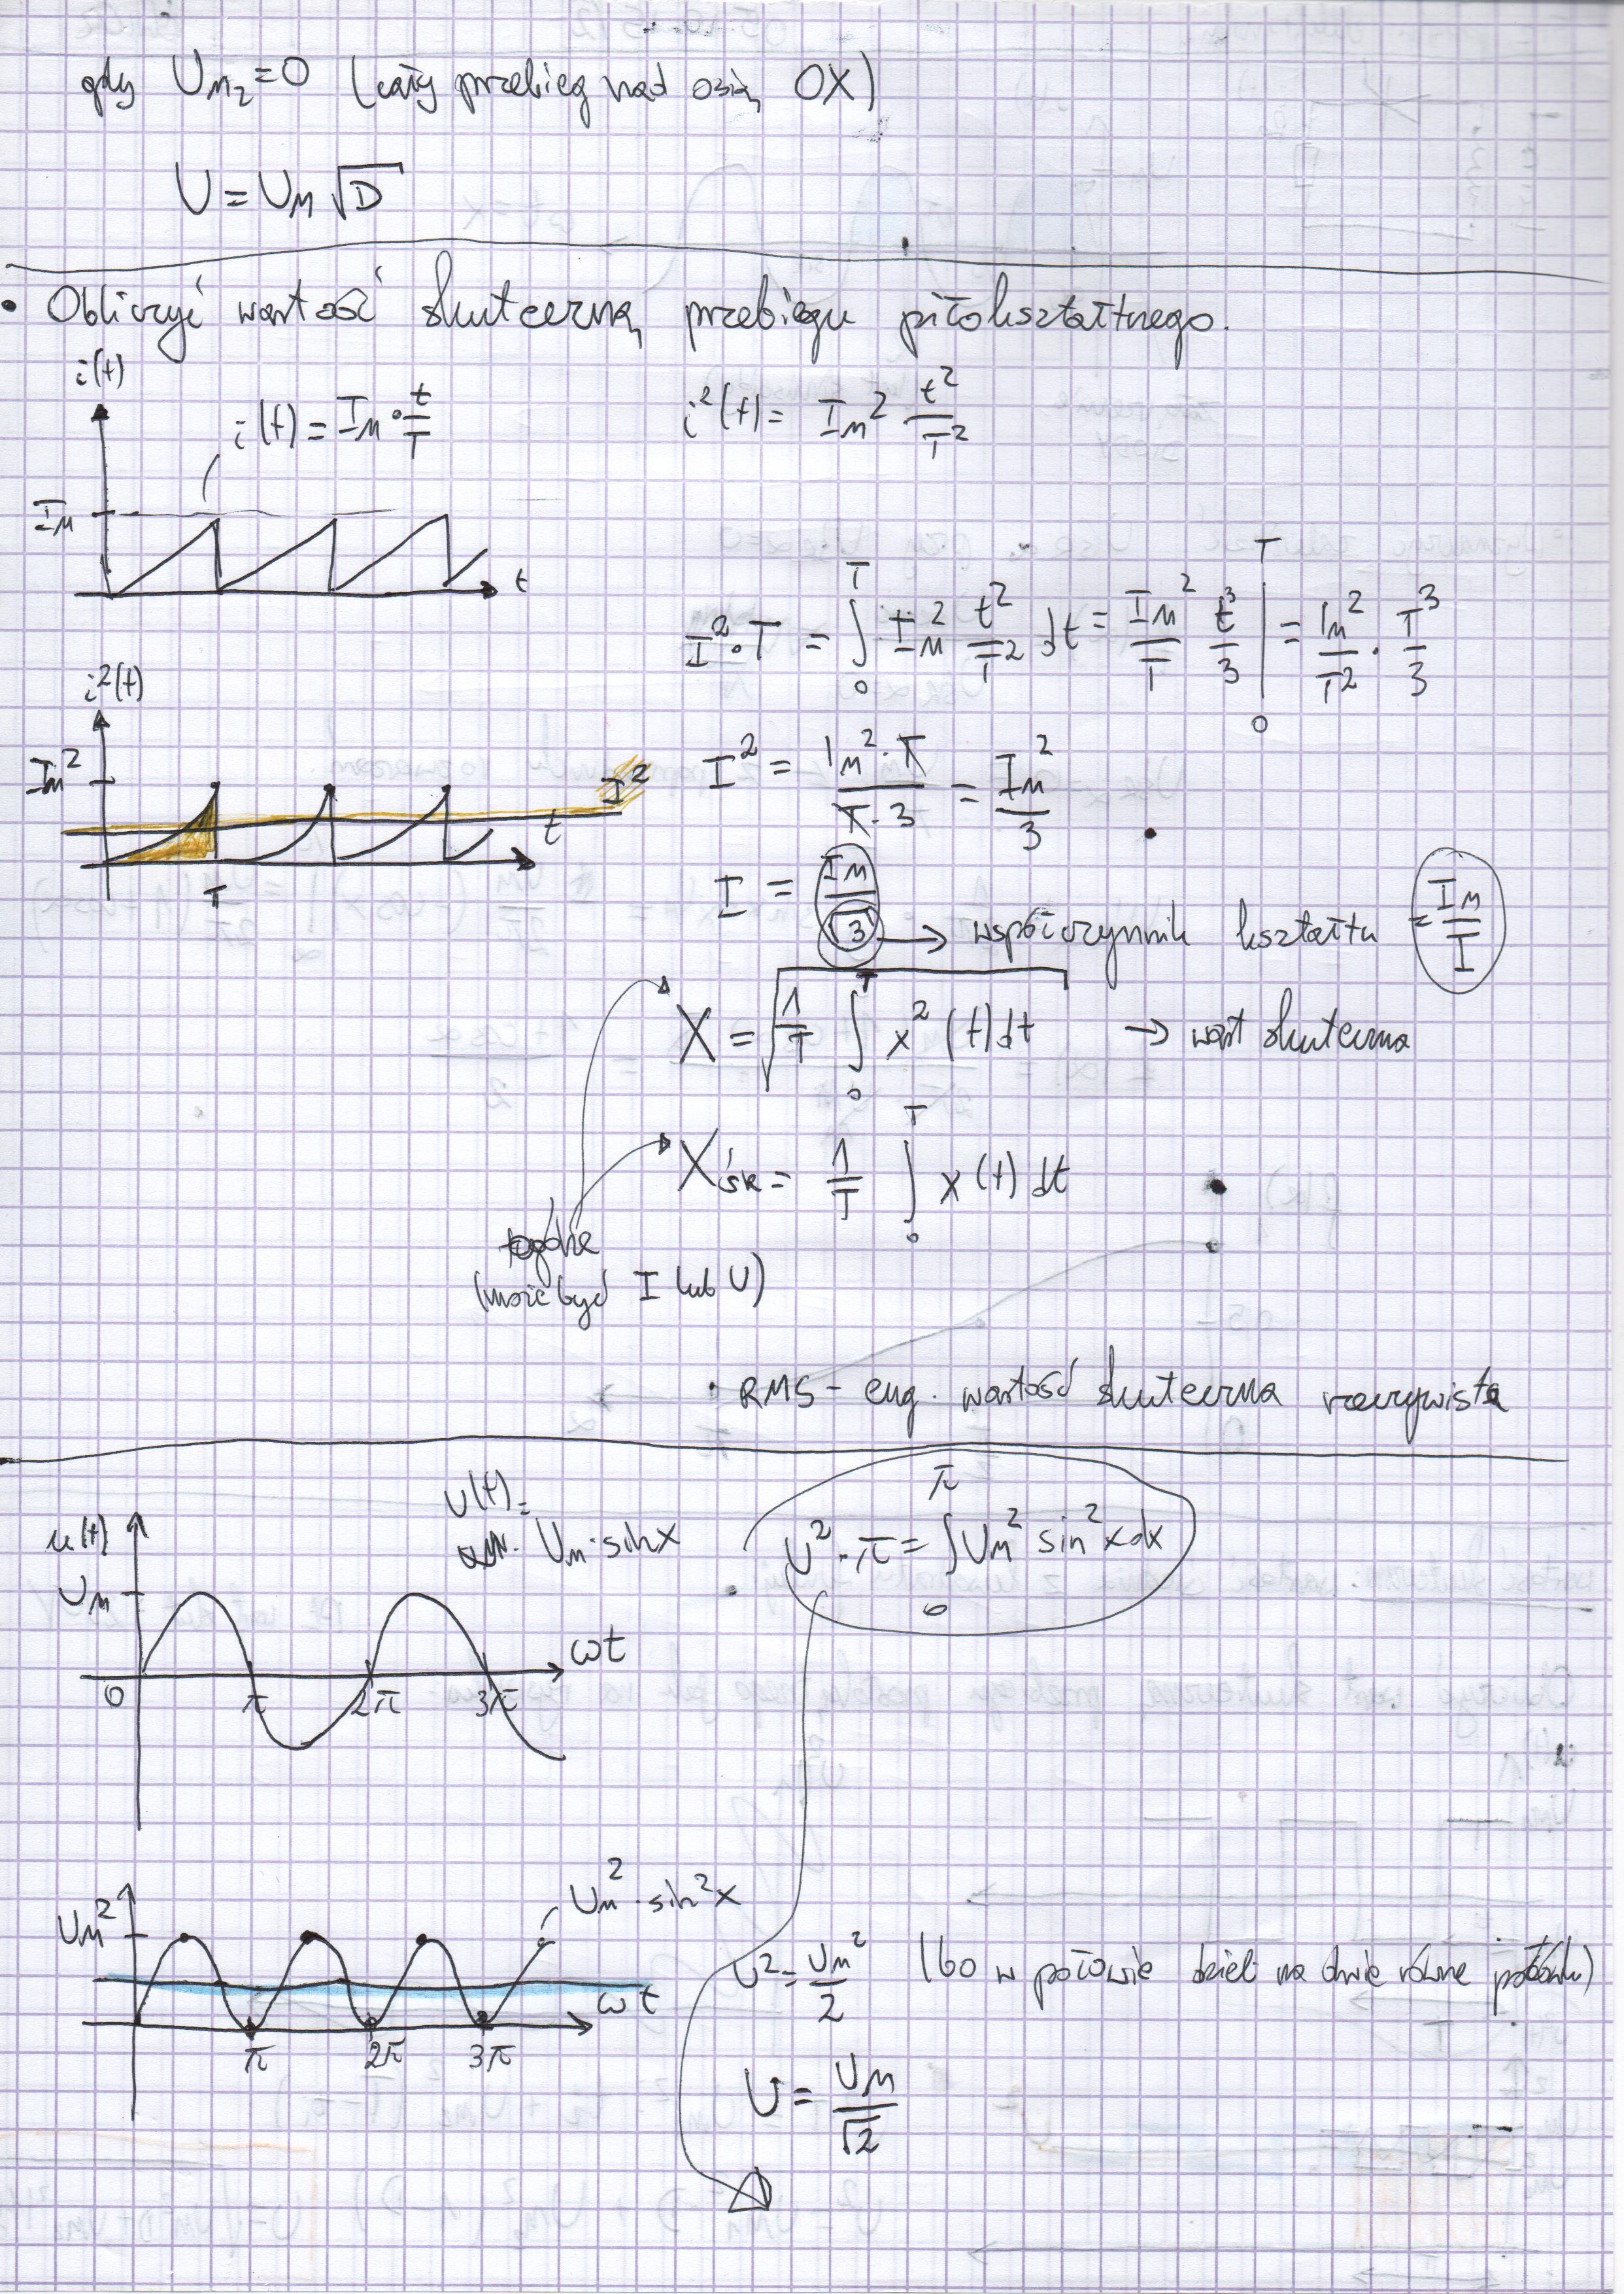 gdy U_{M2} = 0 (cały przebieg nad osią OX)
U = U_M √D
• Obliczyć wartość skuteczną przebiegu piłokształtnego.
i(t)
i(t) = I_M · t/T
i²(t) = I_M² t²/T²
I_M
t
I² · T = ∫₀ᵀ I_M² t²/T² dt = I_M²/T t³/3 |₀ᵀ = I_M²/T² · T³/3
i²(t)
I_M²
I²
t
T
I² = I_M² · T / T · 3 = I_M²/3
I = I_M/√3 → współczynnik kształtu = I_M/I
X = √(1/T ∫₀ᵀ x²(t) dt) → wart skuteczna
X_śr = 1/T ∫₀ᵀ x(t) dt
(może być I lub U)
• RMS - eng. wartość skuteczna rzeczywista
u(t)
U(t) =
U_M · sin x
U² · π = ∫₀^π U_M² sin² x dx
U_M
ωt
0 π 2π 3π
U_M² · sin² x
U_M²
ωt
π 2π 3π
U² = U_M²/2 (bo w połowie dzieli na dwie równe połówki)
U = U_M/√2